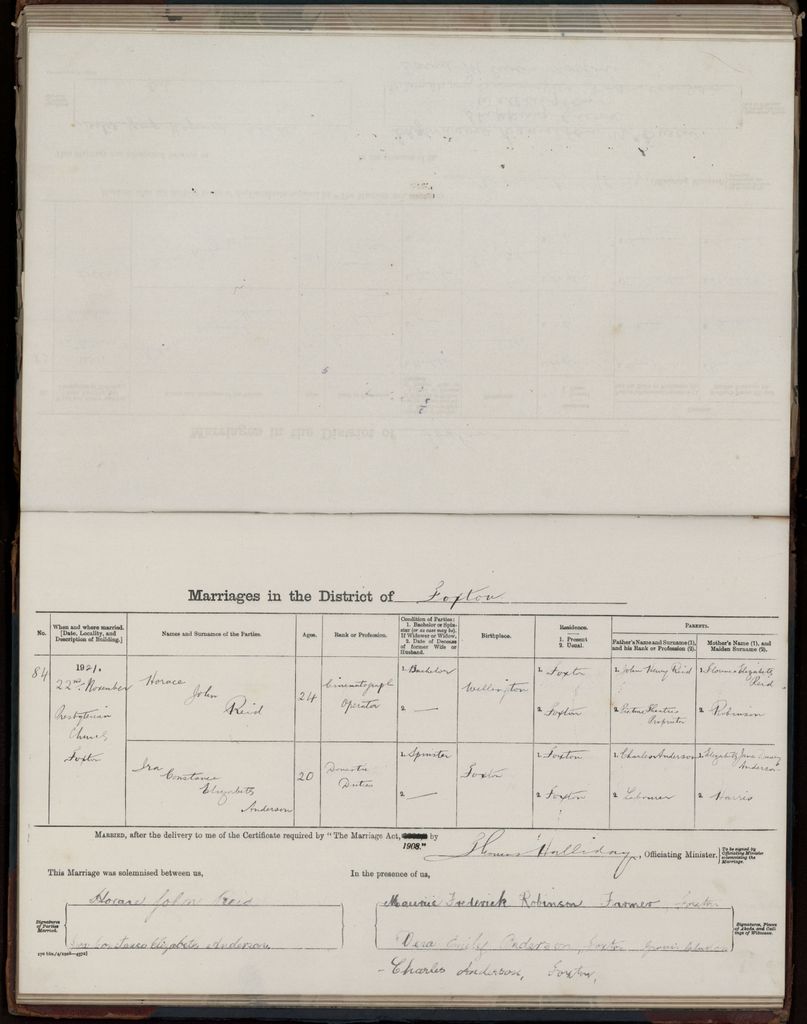 Marriages in the District of Foxton
No.
When and where married. [Date, Locality, and Description of Building.]
Names and Surnames of the Parties.
Ages.
Rank or Profession.
Condition of Parties: 1. Bachelor or Spinster (or as case may be). If Widower or Widow, 2. Date of Decease of former Wife or Husband.
Birthplace.
Residence. 1. Present 2. Usual.
PARENTS.
Father's Name and Surname (1), and his Rank or Profession (2).
Mother's Name (1), and Maiden Surname (2).
84
1921.
22nd November
Presbyterian
Church
Foxton
Horace
John
Reid
24
Cinematograph
Operator
1. Bachelor
2. —
Wellington
1. Foxton
2. Foxton
1. John Henry Reid
2. Picture Theatre
Proprietor
1. Elizabeth
Reid
2. Robinson
Ira
Constance
Elizabeth
Anderson
20
Domestic
Duties
1. Spinster
2. —
Foxton
1. Foxton
2. Foxton
1. Charles Anderson
2. Labourer
1. Elizabeth Jane
Anderson
2. Harris
MARRIED, after the delivery to me of the Certificate required by "The Marriage Act, by
1908."
Thomas Halliday, Officiating Minister.
[To be signed by Officiating Minister solemnizing the Marriage.
This Marriage was solemnised between us,
In the presence of us,
Signatures of Parties Married.
Horace John Reid
Ira Constance Elizabeth Anderson.
Maurice Frederick Robinson Farmer Foxton
Vera Emily Anderson, Foxton
Charles Anderson, Foxton,
Signatures, Places of Abode, and Callings of Witnesses.
Marriages in the District of